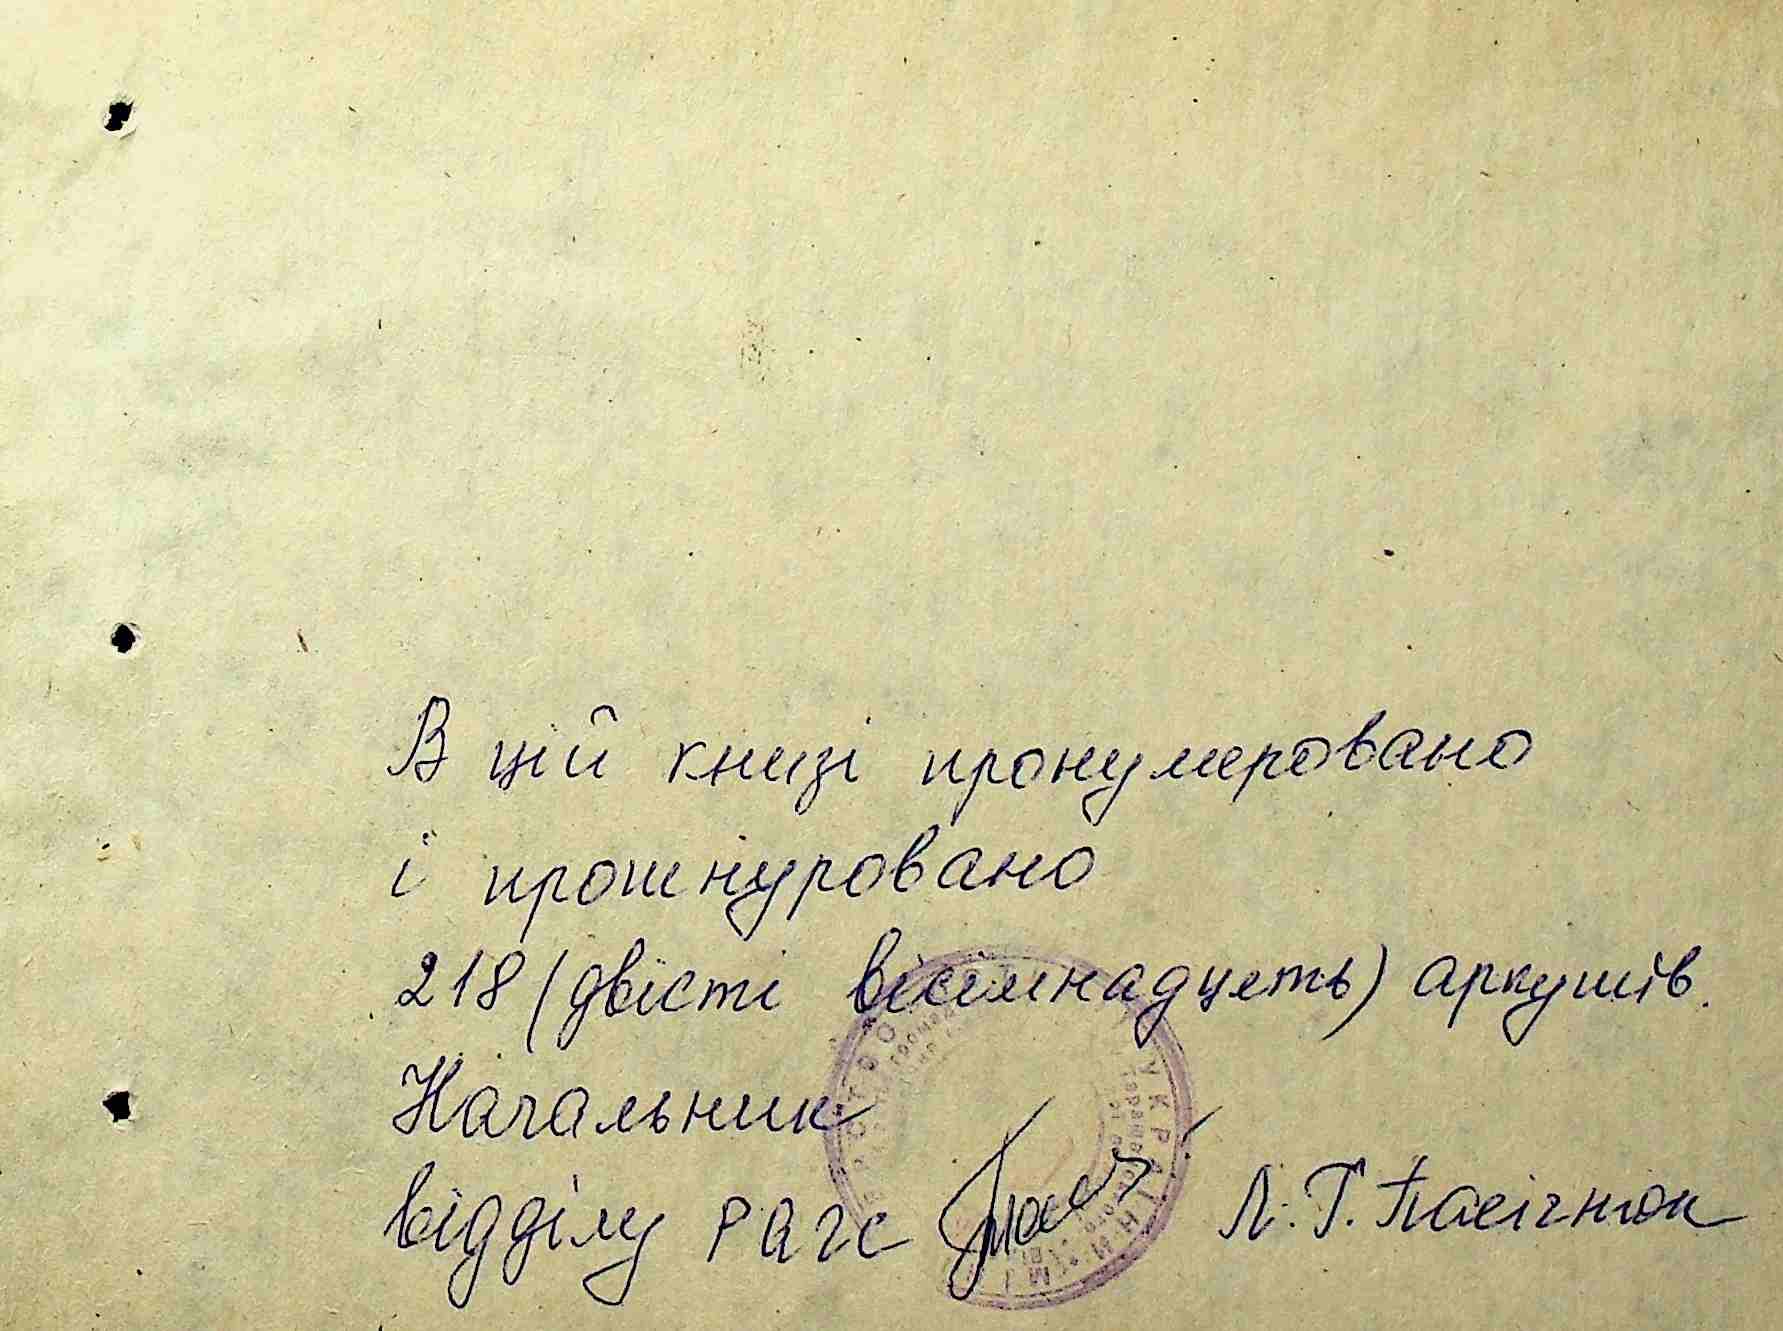 В цій книзі пронумеровано
і прошнуровано
218 (двісті вісімнадцять) аркушів.
Начальник
відділу РАГС Л. Г. Пасічнюк